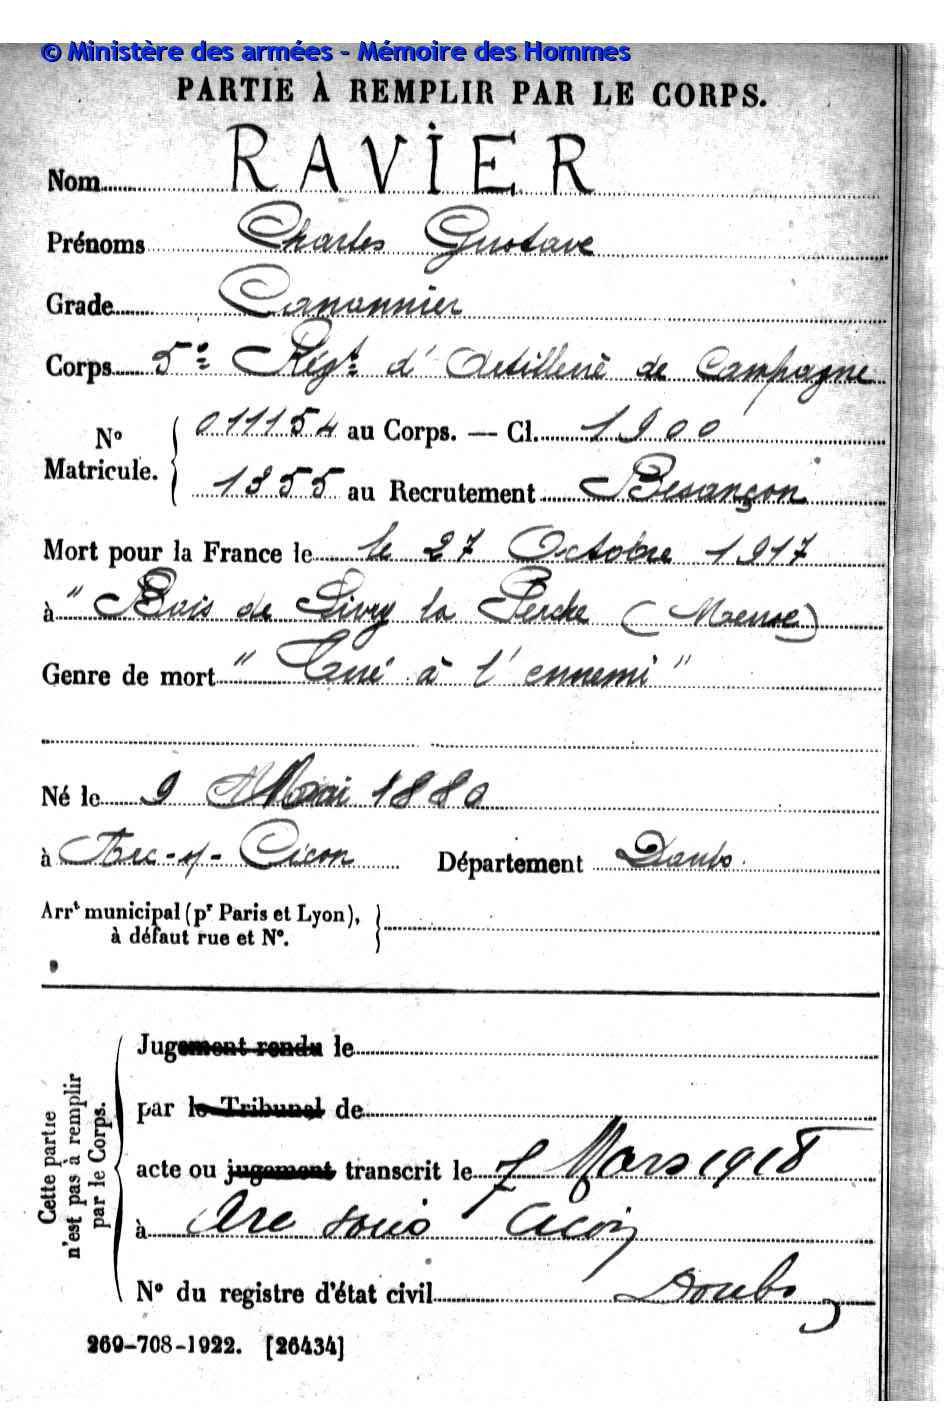 © Ministère des armées - Mémoire des Hommes
PARTIE À REMPLIR PAR LE CORPS.
Nom RAVIER
Prénoms Charles Gustave
Grade Canonnier
Corps 5e Régt d'Artillerie de Campagne
No Matricule. 011154 au Corps. — Cl. 1900
1355 au Recrutement Besançon
Mort pour la France le le 27 Octobre 1917
à "Bois de Livry la Perche (Meuse)
Genre de mort "Tué à l'ennemi"
Né le 9 Mai 1880
à Arc-s/-Cicon Département Doubs.
Arrt municipal (pr Paris et Lyon),
à défaut rue et No.
Cette partie
n'est pas à remplir
par le Corps.
Jugement rendu le
par le Tribunal de
acte ou jugement transcrit le 7 Mars 1918
à Arc sous Cicon
No du registre d'état civil Doubs
269-708-1922. [26434]